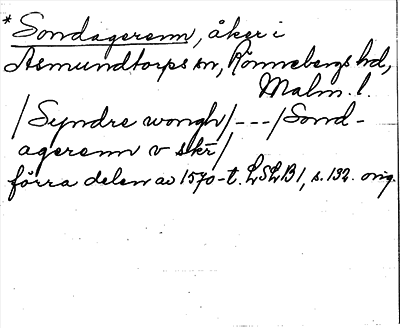 * Sondagerenn, åker i
Asmundtorps sn, Rönnebergs hd,
Malm. l.
/Syndre wongh/---/Sond-
agerenn v skr̅/
förra delen av 1570-t. LSLB1, s. 132. orig.